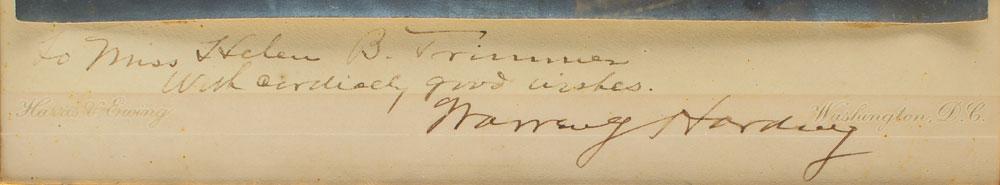 To Miss Helen B. Trimmer
With cordially good wishes.
Harris & Ewing
Warren G Harding
Washington, D.C.